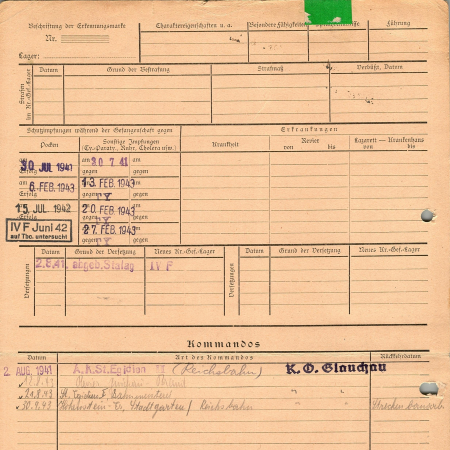 Beschriftung der Erkennungsmarke
Nr.
Lager:
Charaktereigenschaften u. a.
Besondere Fähigkeiten
Führung
Strafen im Kr.-Gef.-Lager
Datum
Grund der Bestrafung
Strafmaß
Verbüßt, Datum
Schutzimpfungen während der Gefangenschaft gegen
Erkrankungen
Pocken
Sonstige Impfungen
(Ty.-Paraty., Ruhr, Cholera usw.)
Krankheit
Revier
von bis
Lazarett — Krankenhaus
von — bis
am 30. JUL 1941
Erfolg
am 30 7 41
gegen
am
gegen
am 6. FEB. 1943
Erfolg
am 13. FEB. 1943
gegen
am
gegen
am 15. JUL. 1942
Erfolg
am 20. FEB. 1943
gegen TY
am
gegen
IV F Juni 42
auf Tbc. untersucht
am 27. FEB. 1943
gegen TY
am
gegen
Versetzungen
Datum
Grund der Versetzung
Neues Kr.-Gef.-Lager
Versetzungen
Datum
Grund der Versetzung
Neues Kr.-Gef.-Lager
2.8.41 abgeb. Stalag IV F
Kommandos
Datum
Art des Kommandos
Rückkehrdatum
2. AUG. 1941 A.K. St. Egidien II (Reichsbahn) K.O. Glauchau
St. Egidien I, Bahnmeisterei
30.9.43 Hohenstein-Er. Stadtgarten / Reichsbahn